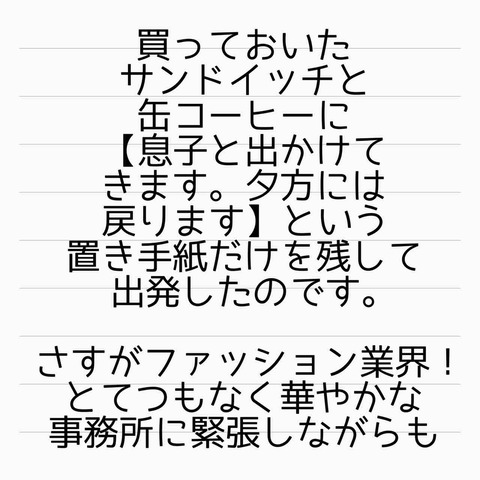 買っておいた
サンドイッチと
缶コーヒーに
【息子と出かけて
きます。夕方には
戻ります】という
置き手紙だけを残して
出発したのです。
さすがファッション業界！
とてつもなく華やかな
事務所に緊張しながらも